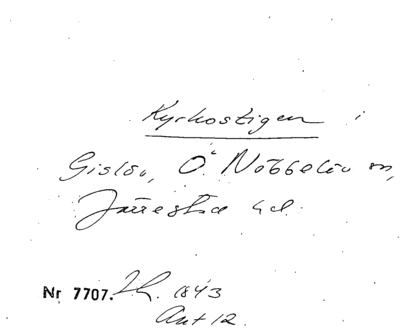 Kyrkostigen i
Gislöv, Ö. Nöbbelöv sn,
Järrestad hd.
Nr 7707. 1843
Ant 12.